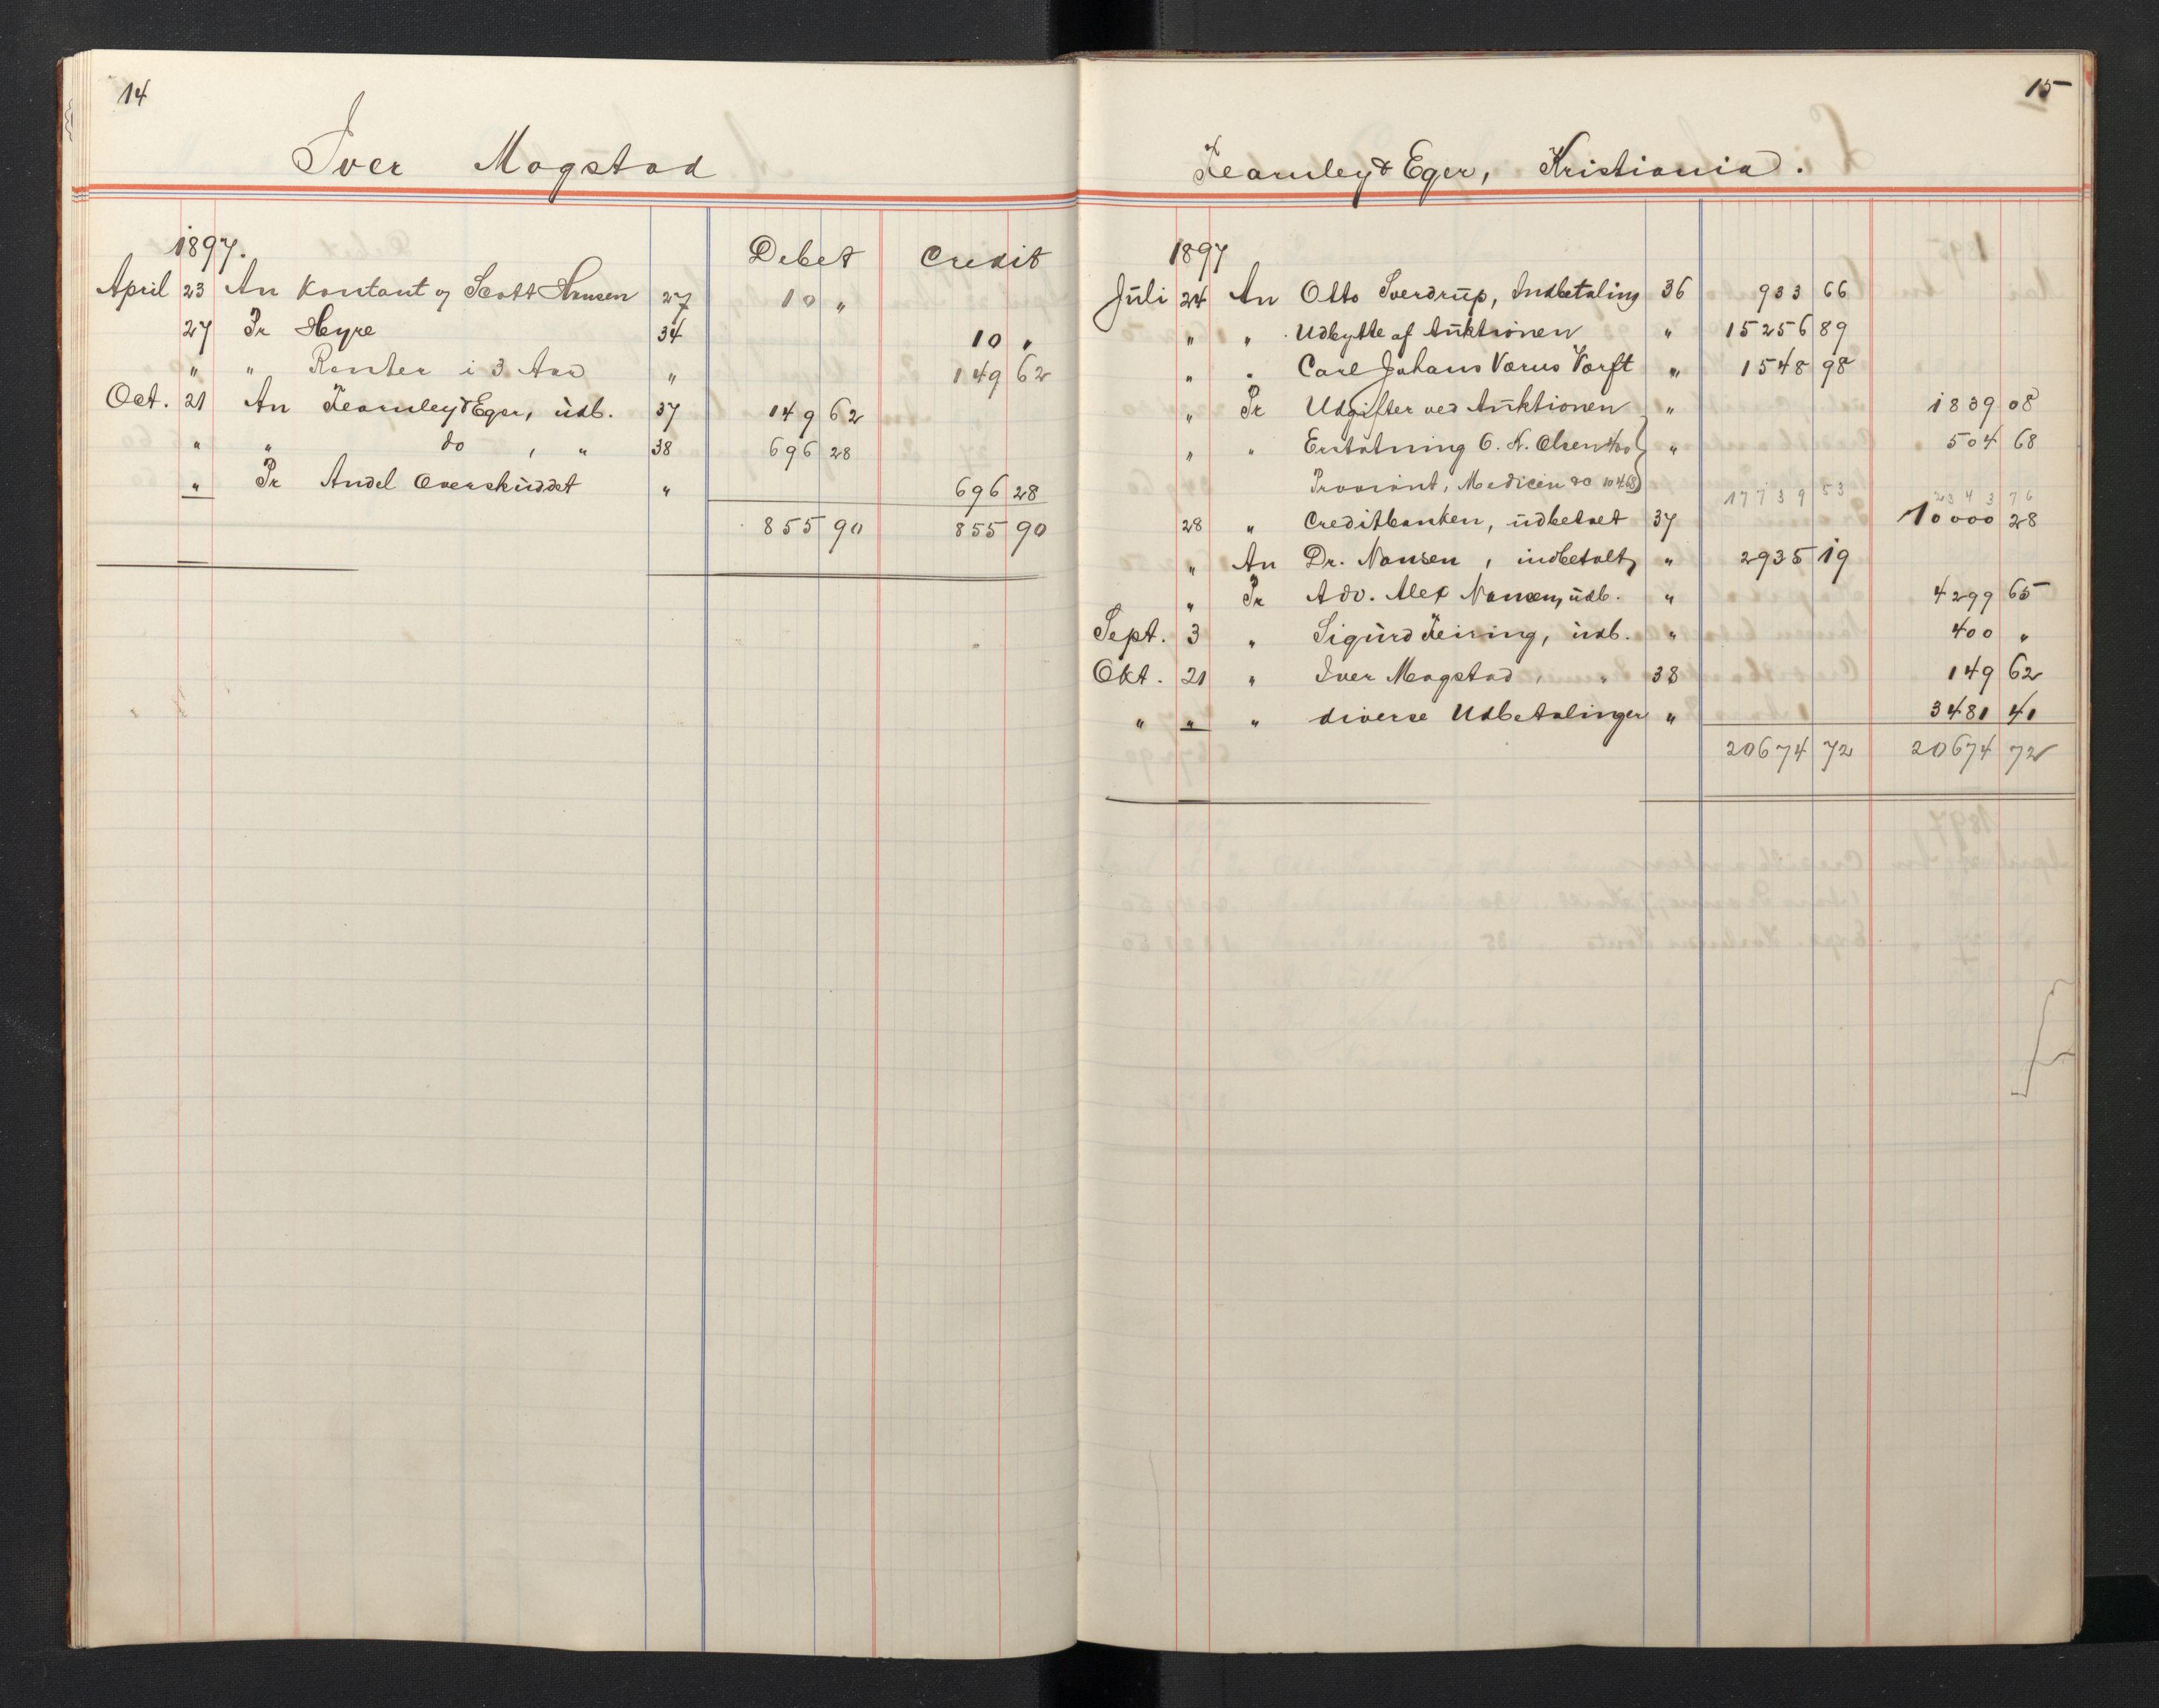 14
Iver Mogstad
1897.
Debet Credit
April 23 An Kontant og Scott Hansen 27 10 "
27 Pr Hyre 34 10 "
" " Renter i 3 Aar " 149 62
Oct. 21 An Fearnley & Eger, üdb. 37 149 62
" " do , " 38 696 28
" Pr Andel Overskúddet " 696 28
855 90 855 90
15
Fearnley & Eger, Kristiania.
1897
Júli 24 An Otto Sverdrüp, Indbetaling 36 933 66
" " Udbytte af Aúktionen " 15256 89
" " Carl Johans Værns Værft " 1548 98
" Pr Udgifter ved Aúktionen " 1839 08
" " Erstatning C. N. Olsen 400 " 504 68
Proviant, Medicin do 104.68
17739 53 2343 76
28 " Creditbanken, üdbetalt 37 10000 28
" An Dr. Nansen, indbetalt, " 2935 19
" Pr Adv. Alex Nansen, üdb. " 4299 65
Sept. 3 " Sigúrd Feiring, üdb. " 400 "
Okt. 21 " Iver Mogstad, " 38 149 62
" " " diverse Udbetalinger " 3481 41
20674 72 20674 72